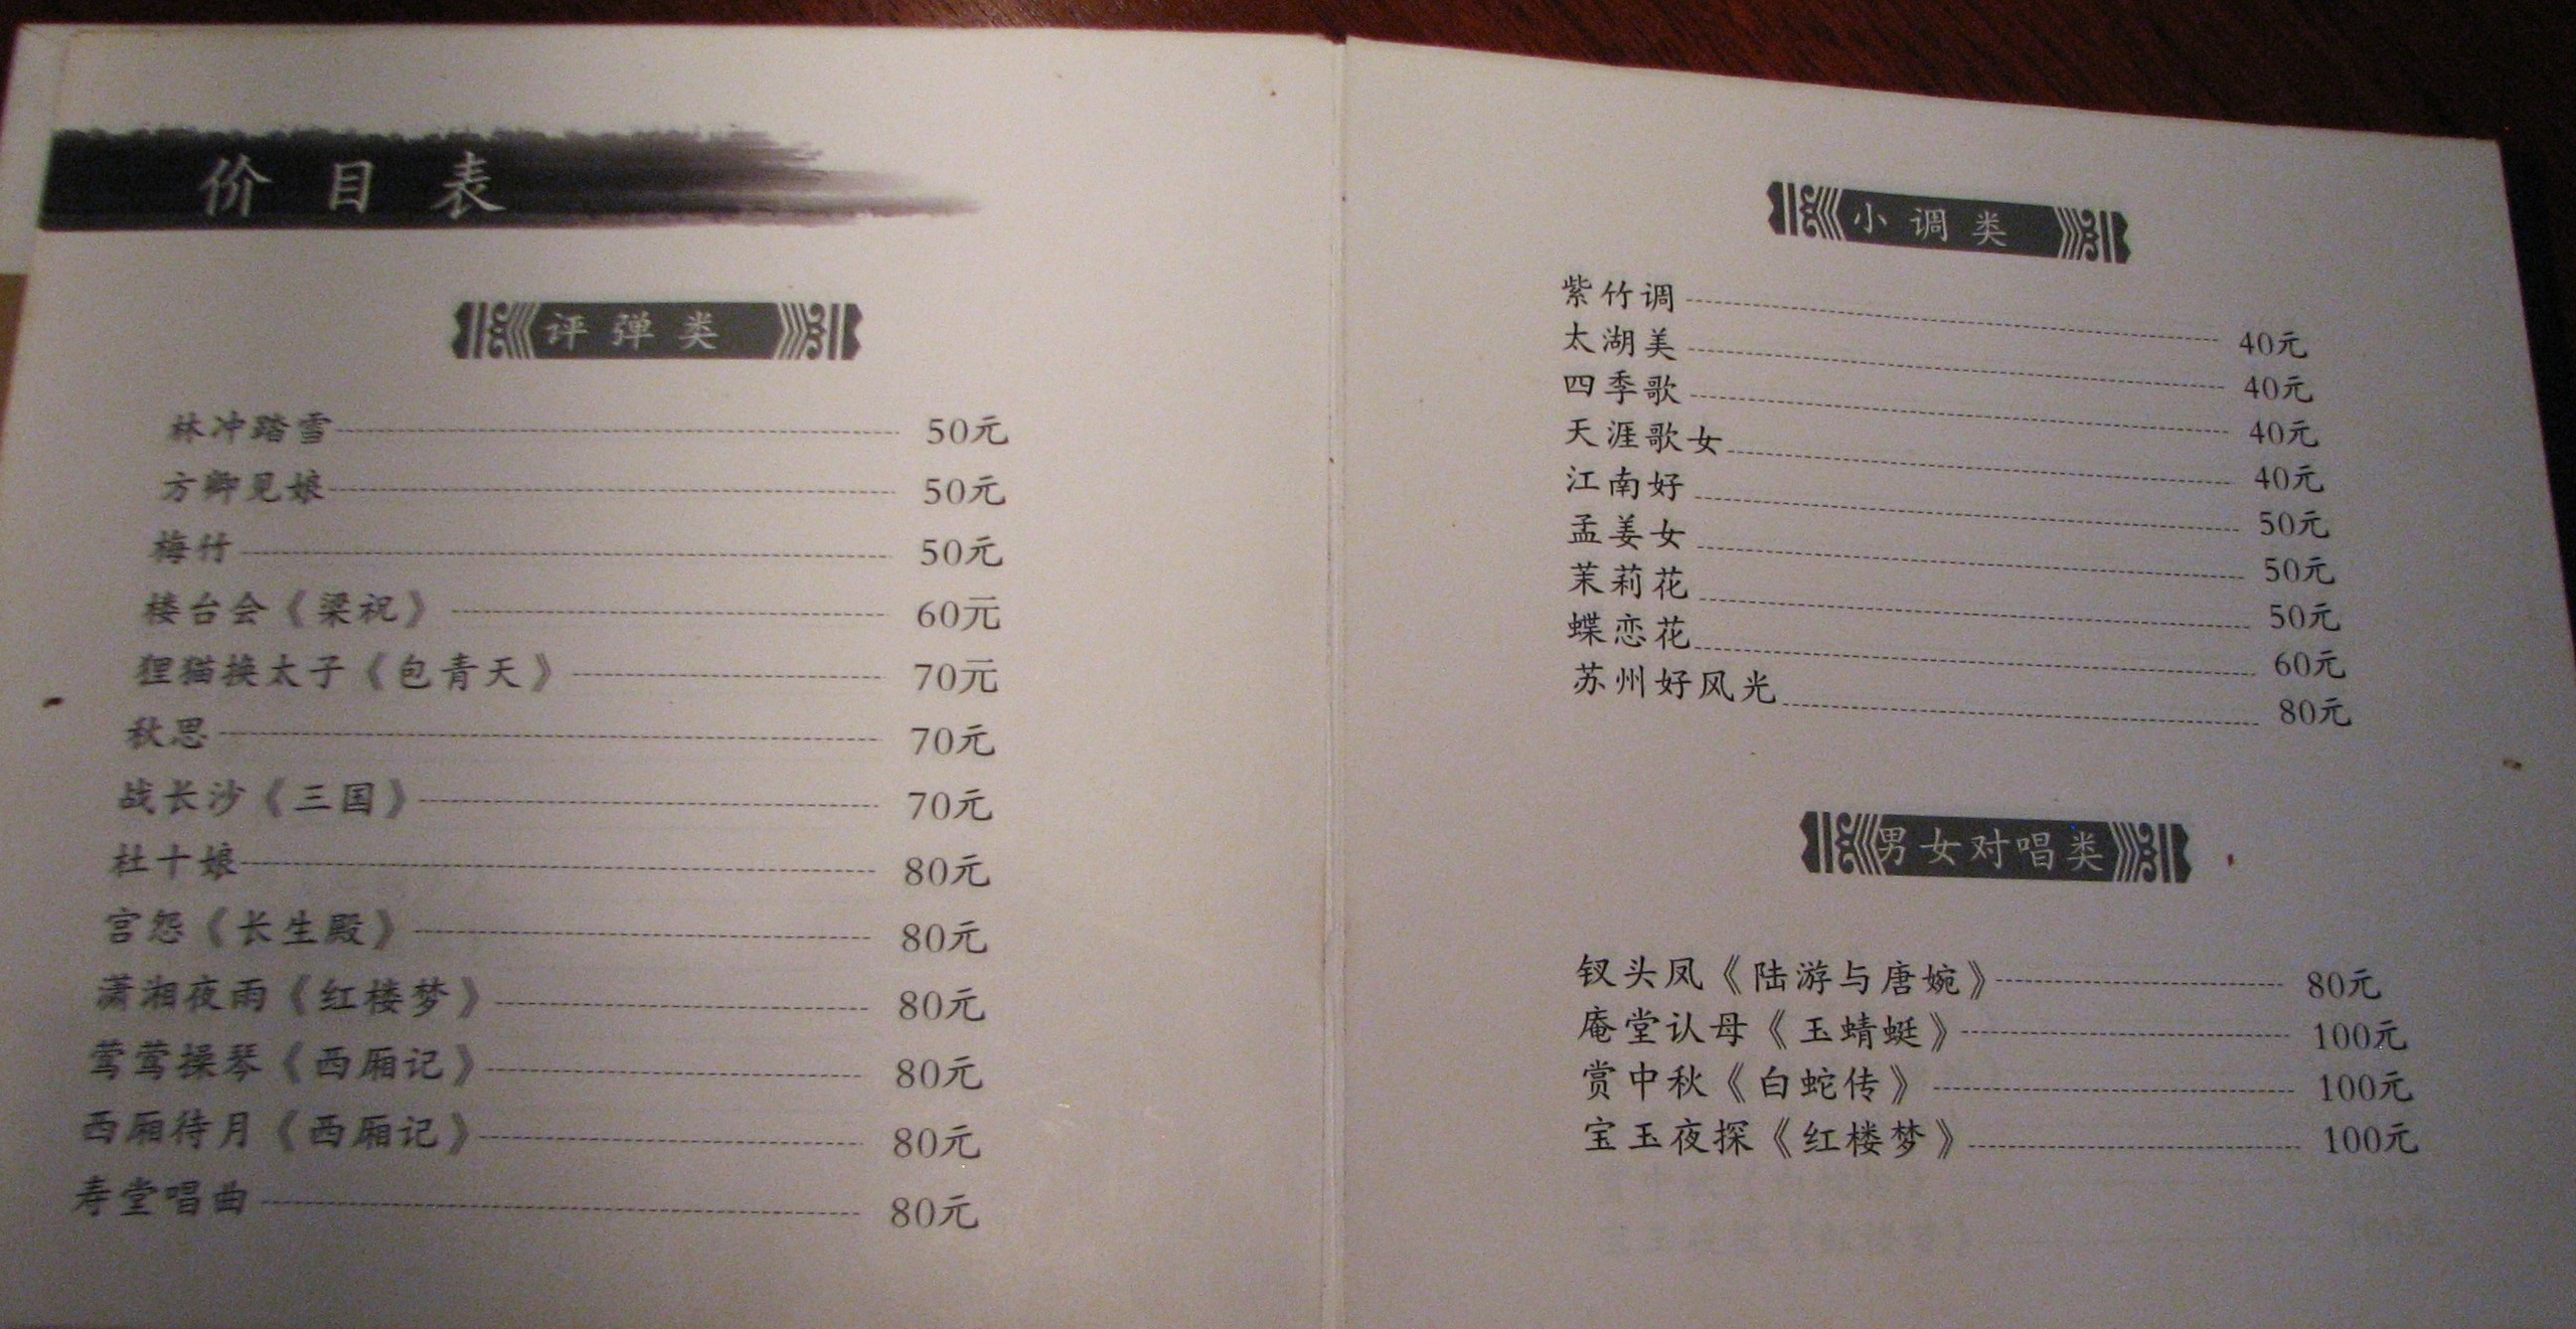 价目表
评弹类
林冲踏雪 50元
方卿见娘 50元
梅竹 50元
楼台会《梁祝》 60元
狸猫换太子《包青天》 70元
秋思 70元
战长沙《三国》 70元
杜十娘 80元
宫怨《长生殿》 80元
潇湘夜雨《红楼梦》 80元
莺莺操琴《西厢记》 80元
西厢待月《西厢记》 80元
寿堂唱曲 80元
小调类
紫竹调 40元
太湖美 40元
四季歌 40元
天涯歌女 40元
江南好 50元
孟姜女 50元
茉莉花 50元
蝶恋花 60元
苏州好风光 80元
男女对唱类
钗头凤《陆游与唐婉》 80元
庵堂认母《玉蜻蜓》 100元
赏中秋《白蛇传》 100元
宝玉夜探《红楼梦》 100元